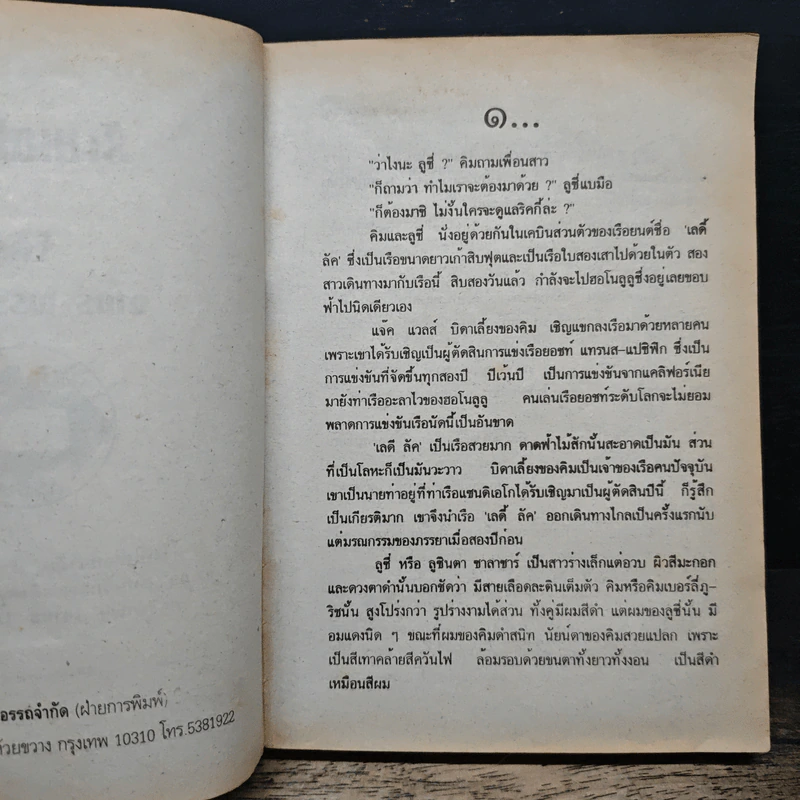 อรรถจำกัด (ฝ่ายการพิมพ์)
ห้วยขวาง กรุงเทพ 10310 โทร.5381922
๑...
"ว่าไงนะ ลูซี่ ?" คิมถามเพื่อนสาว
"ก็ถามว่า ทำไมเราจะต้องมาด้วย ?" ลูซี่แบมือ
"ก็ต้องมาซิ ไม่งั้นใครจะดูแลริคกี้ล่ะ ?"
คิมและลูซี่ นั่งอยู่ด้วยกันในเคบินส่วนตัวของเรือยนต์ชื่อ 'เลดี้
ลัค' ซึ่งเป็นเรือขนาดยาวเก้าสิบฟุตและเป็นเรือใบสองเสาไปด้วยในตัว สอง
สาวเดินทางมากับเรือนี้ สิบสองวันแล้ว กำลังจะไปฮอโนลูลูซึ่งอยู่เลยขอบ
ฟ้าไปนิดเดียวเอง
แจ๊ค แวลส์ บิดาเลี้ยงของคิม เชิญแขกลงเรือมาด้วยหลายคน
เพราะเขาได้รับเชิญเป็นผู้ตัดสินการแข่งเรือยอชท์ แทรนส–แปซิฟิก ซึ่งเป็น
การแข่งขันที่จัดขึ้นทุกสองปี ปีเว้นปี เป็นการแข่งขันจากแคลิฟอร์เนีย
มายังท่าเรืออะลาไวของฮอโนลูลู คนเล่นเรือยอชท์ระดับโลกจะไม่ยอม
พลาดการแข่งขันเรือนัดนี้เป็นอันขาด
'เลดี ลัค' เป็นเรือสวยมาก ดาดฟ้าไม้สักนั้นสะอาดเป็นมัน ส่วน
ที่เป็นโลหะก็เป็นมันวะวาว บิดาเลี้ยงของคิมเป็นเจ้าของเรือคนปัจจุบัน
เขาเป็นนายท่าอยู่ที่ท่าเรือแซนดิเอโกได้รับเชิญมาเป็นผู้ตัดสินปีนี้ ก็รู้สึก
เป็นเกียรติมาก เขาจึงนำเรือ 'เลดี้ ลัค' ออกเดินทางไกลเป็นครั้งแรกนับ
แต่มรณกรรมของภรรยาเมื่อสองปีก่อน
ลูซี่ หรือ ลูซินดา ซาลาซาร์ เป็นสาวร่างเล็กแต่อวบ ผิวสีมะกอก
และดวงตาดำนั้นบอกชัดว่า มีสายเลือดละตินเต็มตัว คิมหรือคิมเบอร์ลี่ภู–
ริชนั้น สูงโปร่งกว่า รูปร่างงามได้ส่วน ทั้งคู่มีผมสีดำ แต่ผมของลูซี่นั้น มี
อมแดงนิด ๆ ขณะที่ผมของคิมดำสนิท นัยน์ตาของคิมสวยแปลก เพราะ
เป็นสีเทาคล้ายสีควันไฟ ล้อมรอบด้วยขนตาทั้งยาวทั้งงอน เป็นสีดำ
เหมือนสีผม